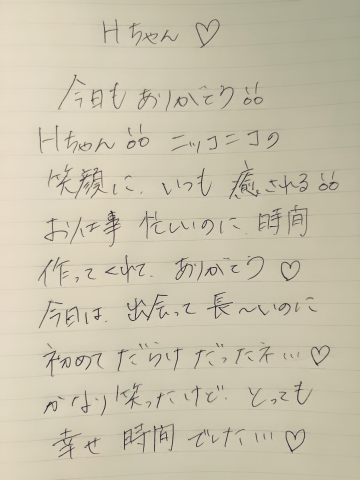 Hちゃん ♡
今日も ありがとう!!
Hちゃん!! ニッコニコの
笑顔に、いつも 癒される!!
お仕事 忙しいのに 時間
作ってくれて、ありがとう ♡
今日は、出会って 長〜いのに
初めて だらけ だったネ… ♡
かなり 笑ったけど、とっても
幸せ 時間 でした… ♡